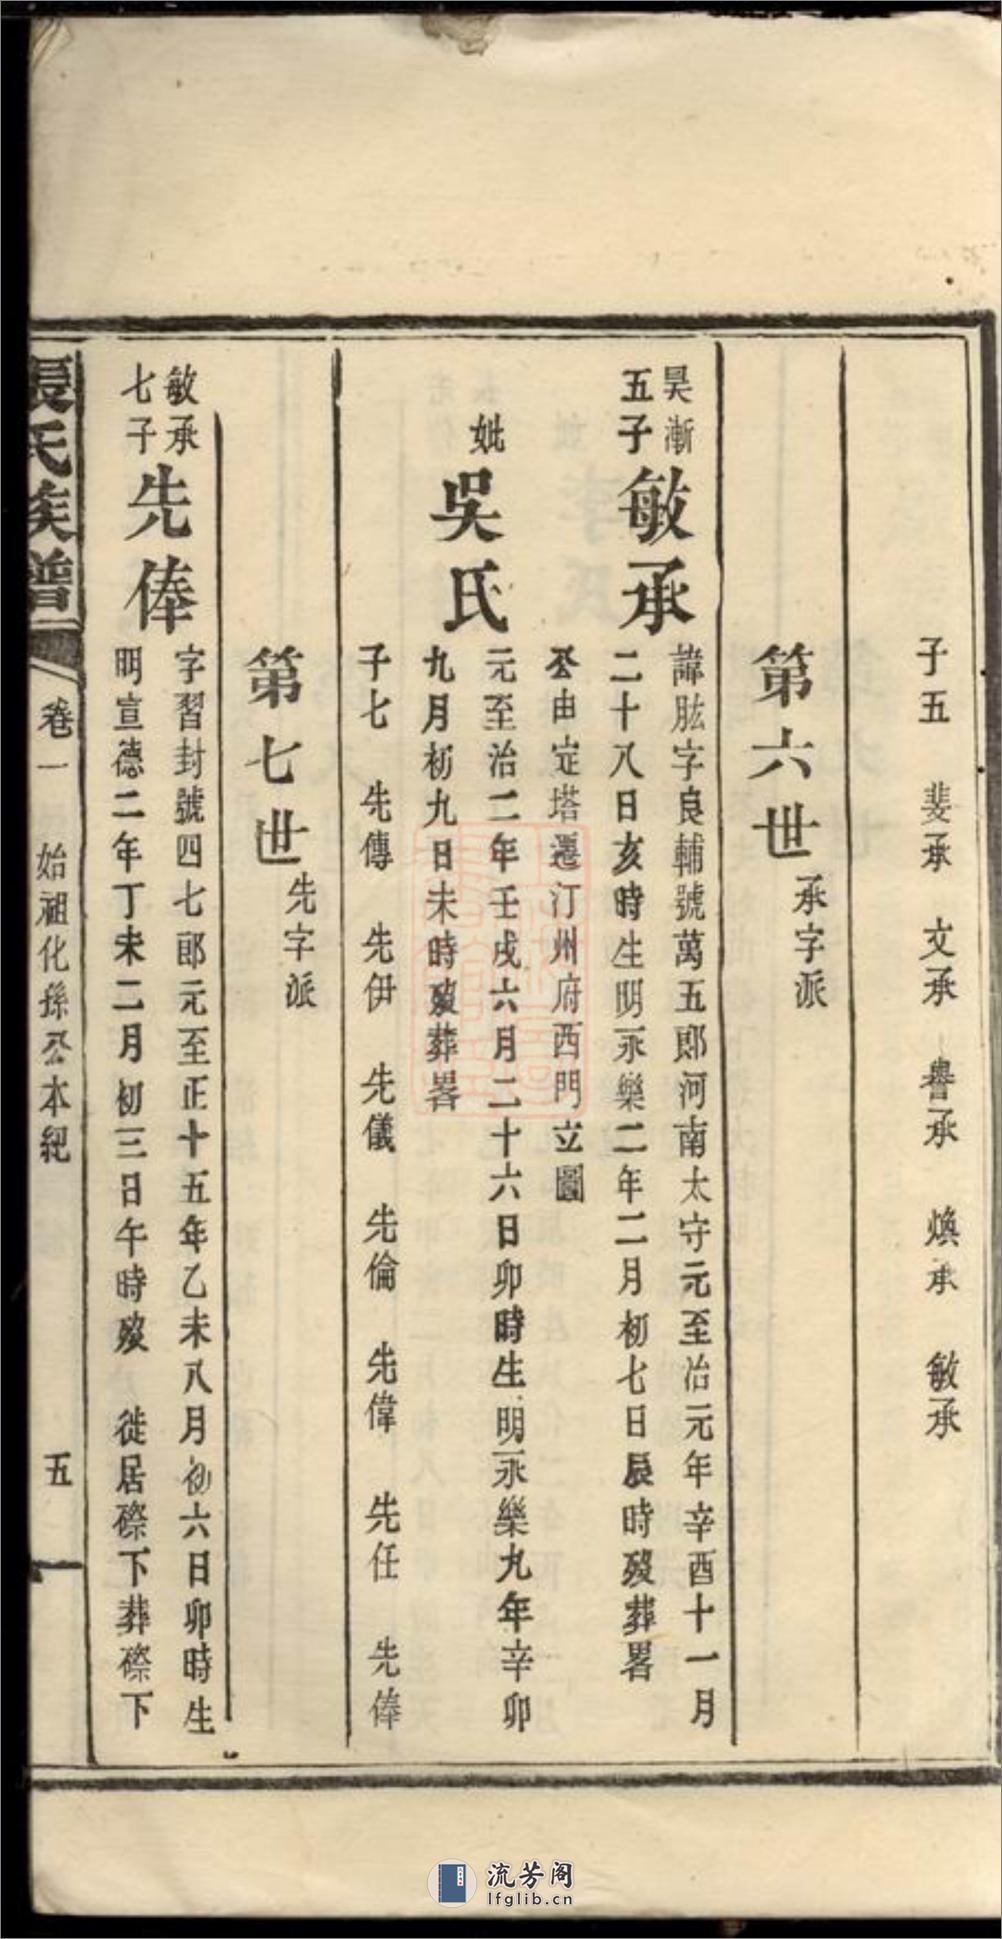 子五 斐承 文承 譽承 煥承 敏承
第六世 承字派
昊漸
五子
敏承
諱肱字良輔號萬五郎河南太守元至治元年辛酉十一月
二十八日亥時生明永樂二年二月初七日辰時歿葬畧
公由定塔遷汀州府西門立圖
妣
吳氏
元至治二年壬戌六月二十六日卯時生明永樂九年辛卯
九月初九日未時歿葬畧
子七 先傳 先伊 先儀 先倫 先偉 先任 先俸
第七世 先字派
敏承
七子
先俸
字習封號四七郎元至正十五年乙未八月初六日卯時生
明宣德二年丁未二月初三日午時歿 徙居磜下葬磜下
張氏族譜 卷一 始祖化孫公本紀 五
流芳阁
lfglib.cn